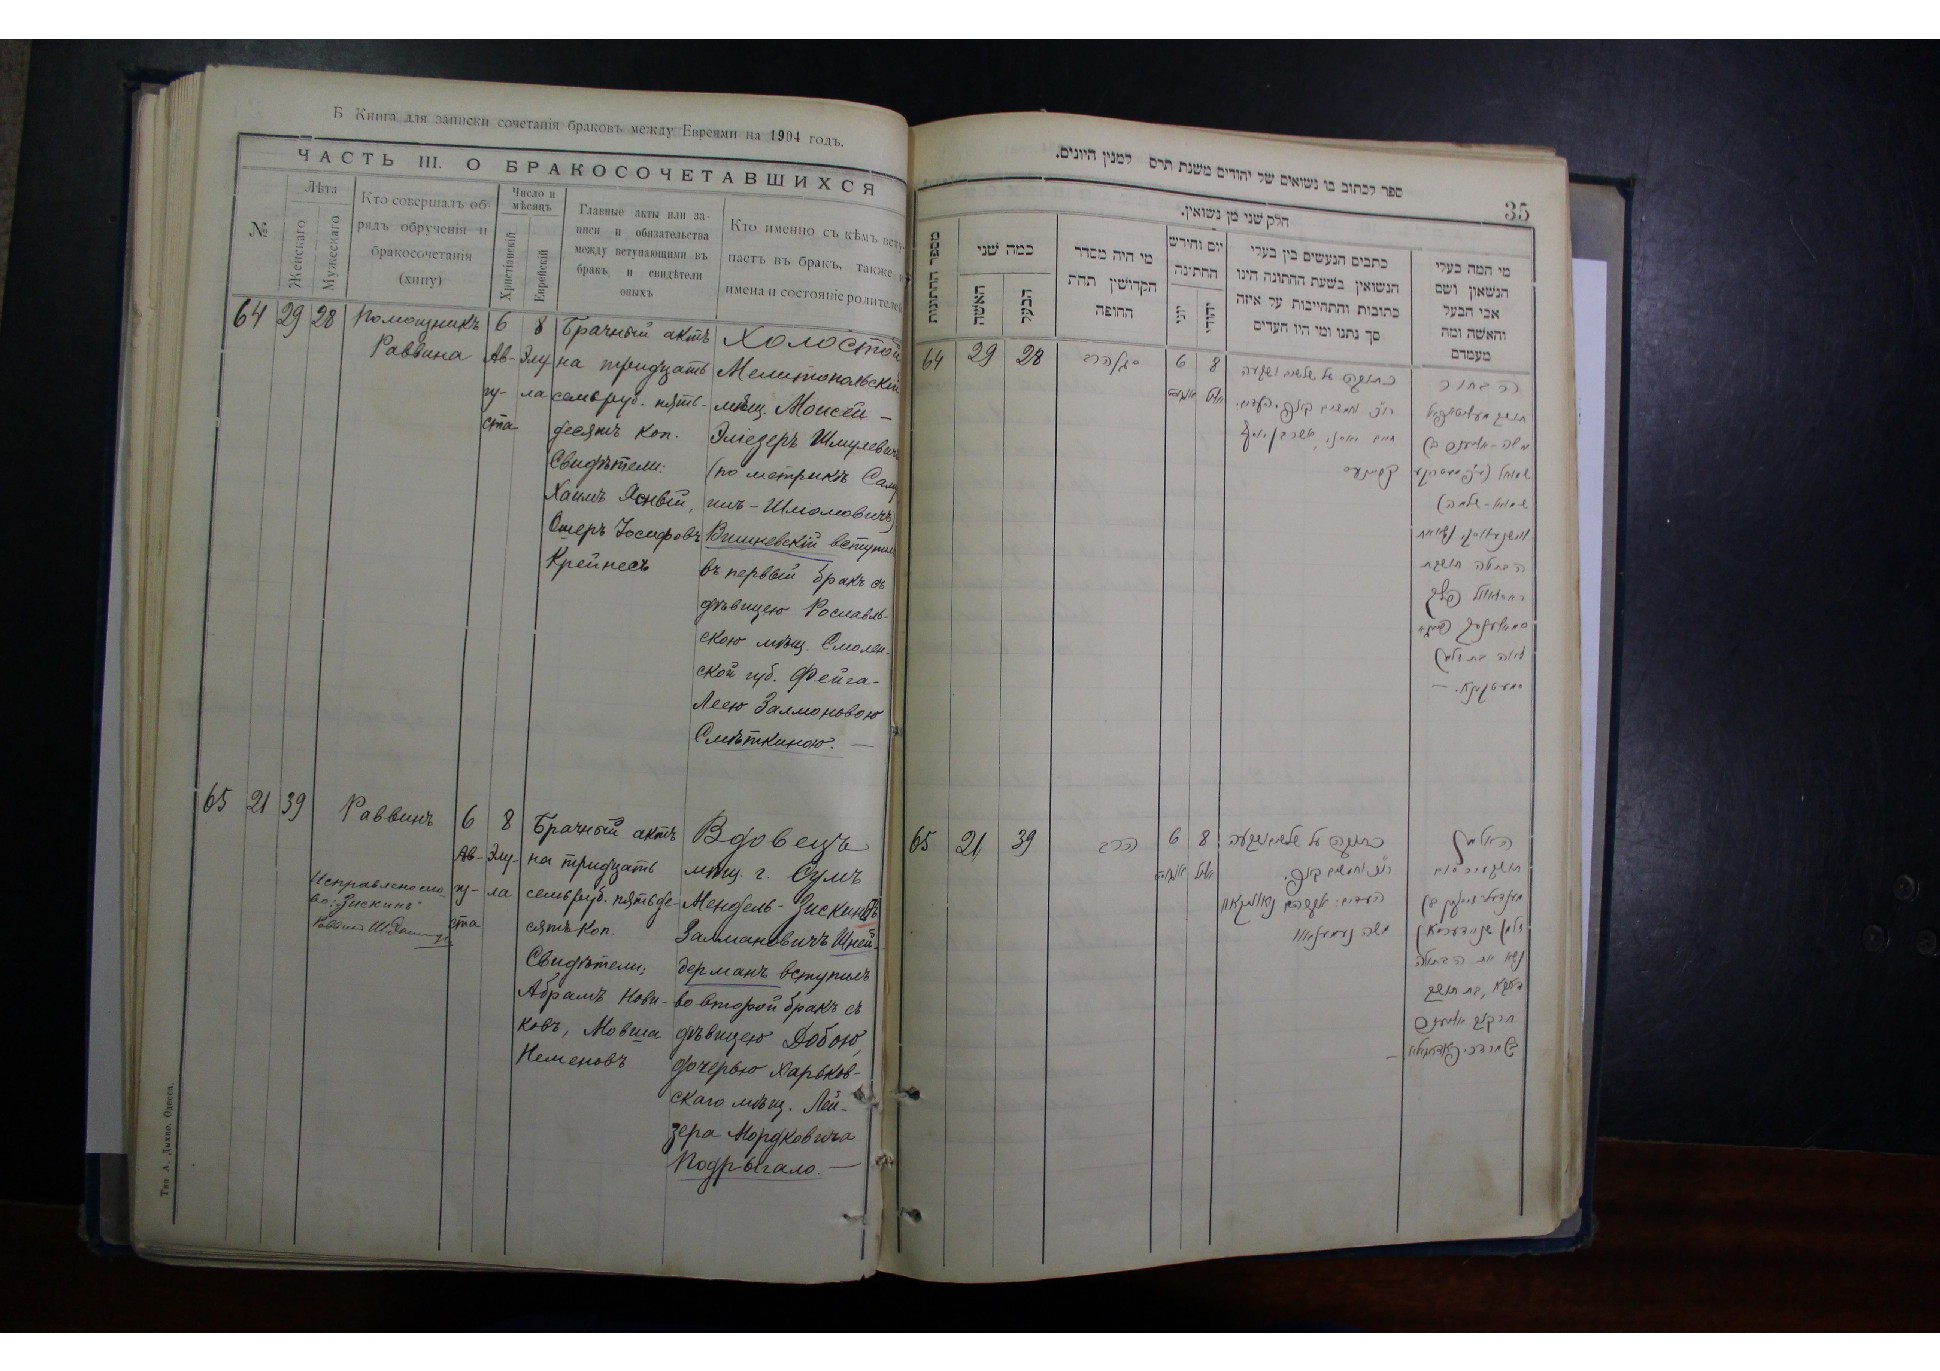 Б Книга для записки сочетанія браковъ между Евреями на 1904 годъ.
ЧАСТЬ III. О БРАКОСОЧЕТАВШИХСЯ
№
Лѣта
Женскаго
Мужескаго
Кто совершалъ об-
рядъ обрученія и
бракосочетанія
(хипу)
Число и
мѣсяцъ
Христіанскій
Еврейскій
Главные акты или за-
писи и обязательства
между вступающими въ
бракъ, и свидѣтели
оныхъ
Кто именно съ кѣмъ всту-
паетъ въ бракъ, также и
имена и состояніе родителей
64
29
28
Помощникъ
Раввина
6
Ав-
гу-
ста
8
Элу
ла
Брачный актъ
на тридцать
семь руб. пять-
десятъ коп.
Свидѣтели:
Хаимъ Ясный,
Ошеръ Іосифовъ
Крейнесъ
Холостой
Мелитопольскій
мѣщ. Моисей -
Эліезеръ Шмулевичъ
(по метрикѣ Саму
илъ - Шломовичъ)
Вишневскій вступилъ
въ первый бракъ съ
дѣвицею Рославль-
скою мѣщ. Смолен-
ской губ. Фейга-
Леею Залмоновою
Смѣткиною. —
65
21
39
Раввинъ
Исправленое сло-
во: „Зискинъ“
Раввинъ
6
Ав-
гу-
ста
8
Элу-
ла
Брачный актъ
на тридцать
семь руб. пятьде-
сятъ коп.
Свидѣтели:
Абрамъ Нови-
ковъ, Мовша
Неменовъ
Вдовецъ
мѣщ. г. Сумъ
Мендель - Зискинъ
Залмановичъ Шней-
дерманъ вступилъ
во второй бракъ съ
дѣвицею Добою,
дочерью Харьков-
скаго мѣщ. Лей-
зера Мордковича
Подрыгало. —
Тип А. Дыхно, Одесса.
ספר לכתוב בו נשואים של יהודים משנת תרס למנין היונים.
35
חלק שני מן נשואין.
מספר החתונות
כמה שני
האשה
הבעל
מי היה מסדר
הקדושין תחת
החופה
יום וחידש
החתינה
יוני
יהודי
כתבים הנעשים בין בעלי
הנשואין בשעת החתונה הינו
כתובות והתחייבות על איזה
סך נתנו ומי היו העדים
מי המה בעלי
הנשאון ושם
אבי הבעל
והאשה ומה
מעמדם
64
29
28
סגן הרב
6
אוגוסט
8
אלול
כתובה על שלשים ושבעה
רו״כ וחמשים קאפ. העדים:
הבחור
שמואל - שלמה)
הבתולה תושבת
לאה בת זלמן
65
21
39
הרב
6
אוגוסט
8
אלול
כתובה על שלשים ושבעה
רו״כ וחמשים קאפ.
העדים: אברהם נאוויקאוו
משה נעמענאוו
האלמן
זלמן שניידערמאן
נשא את הבתולה